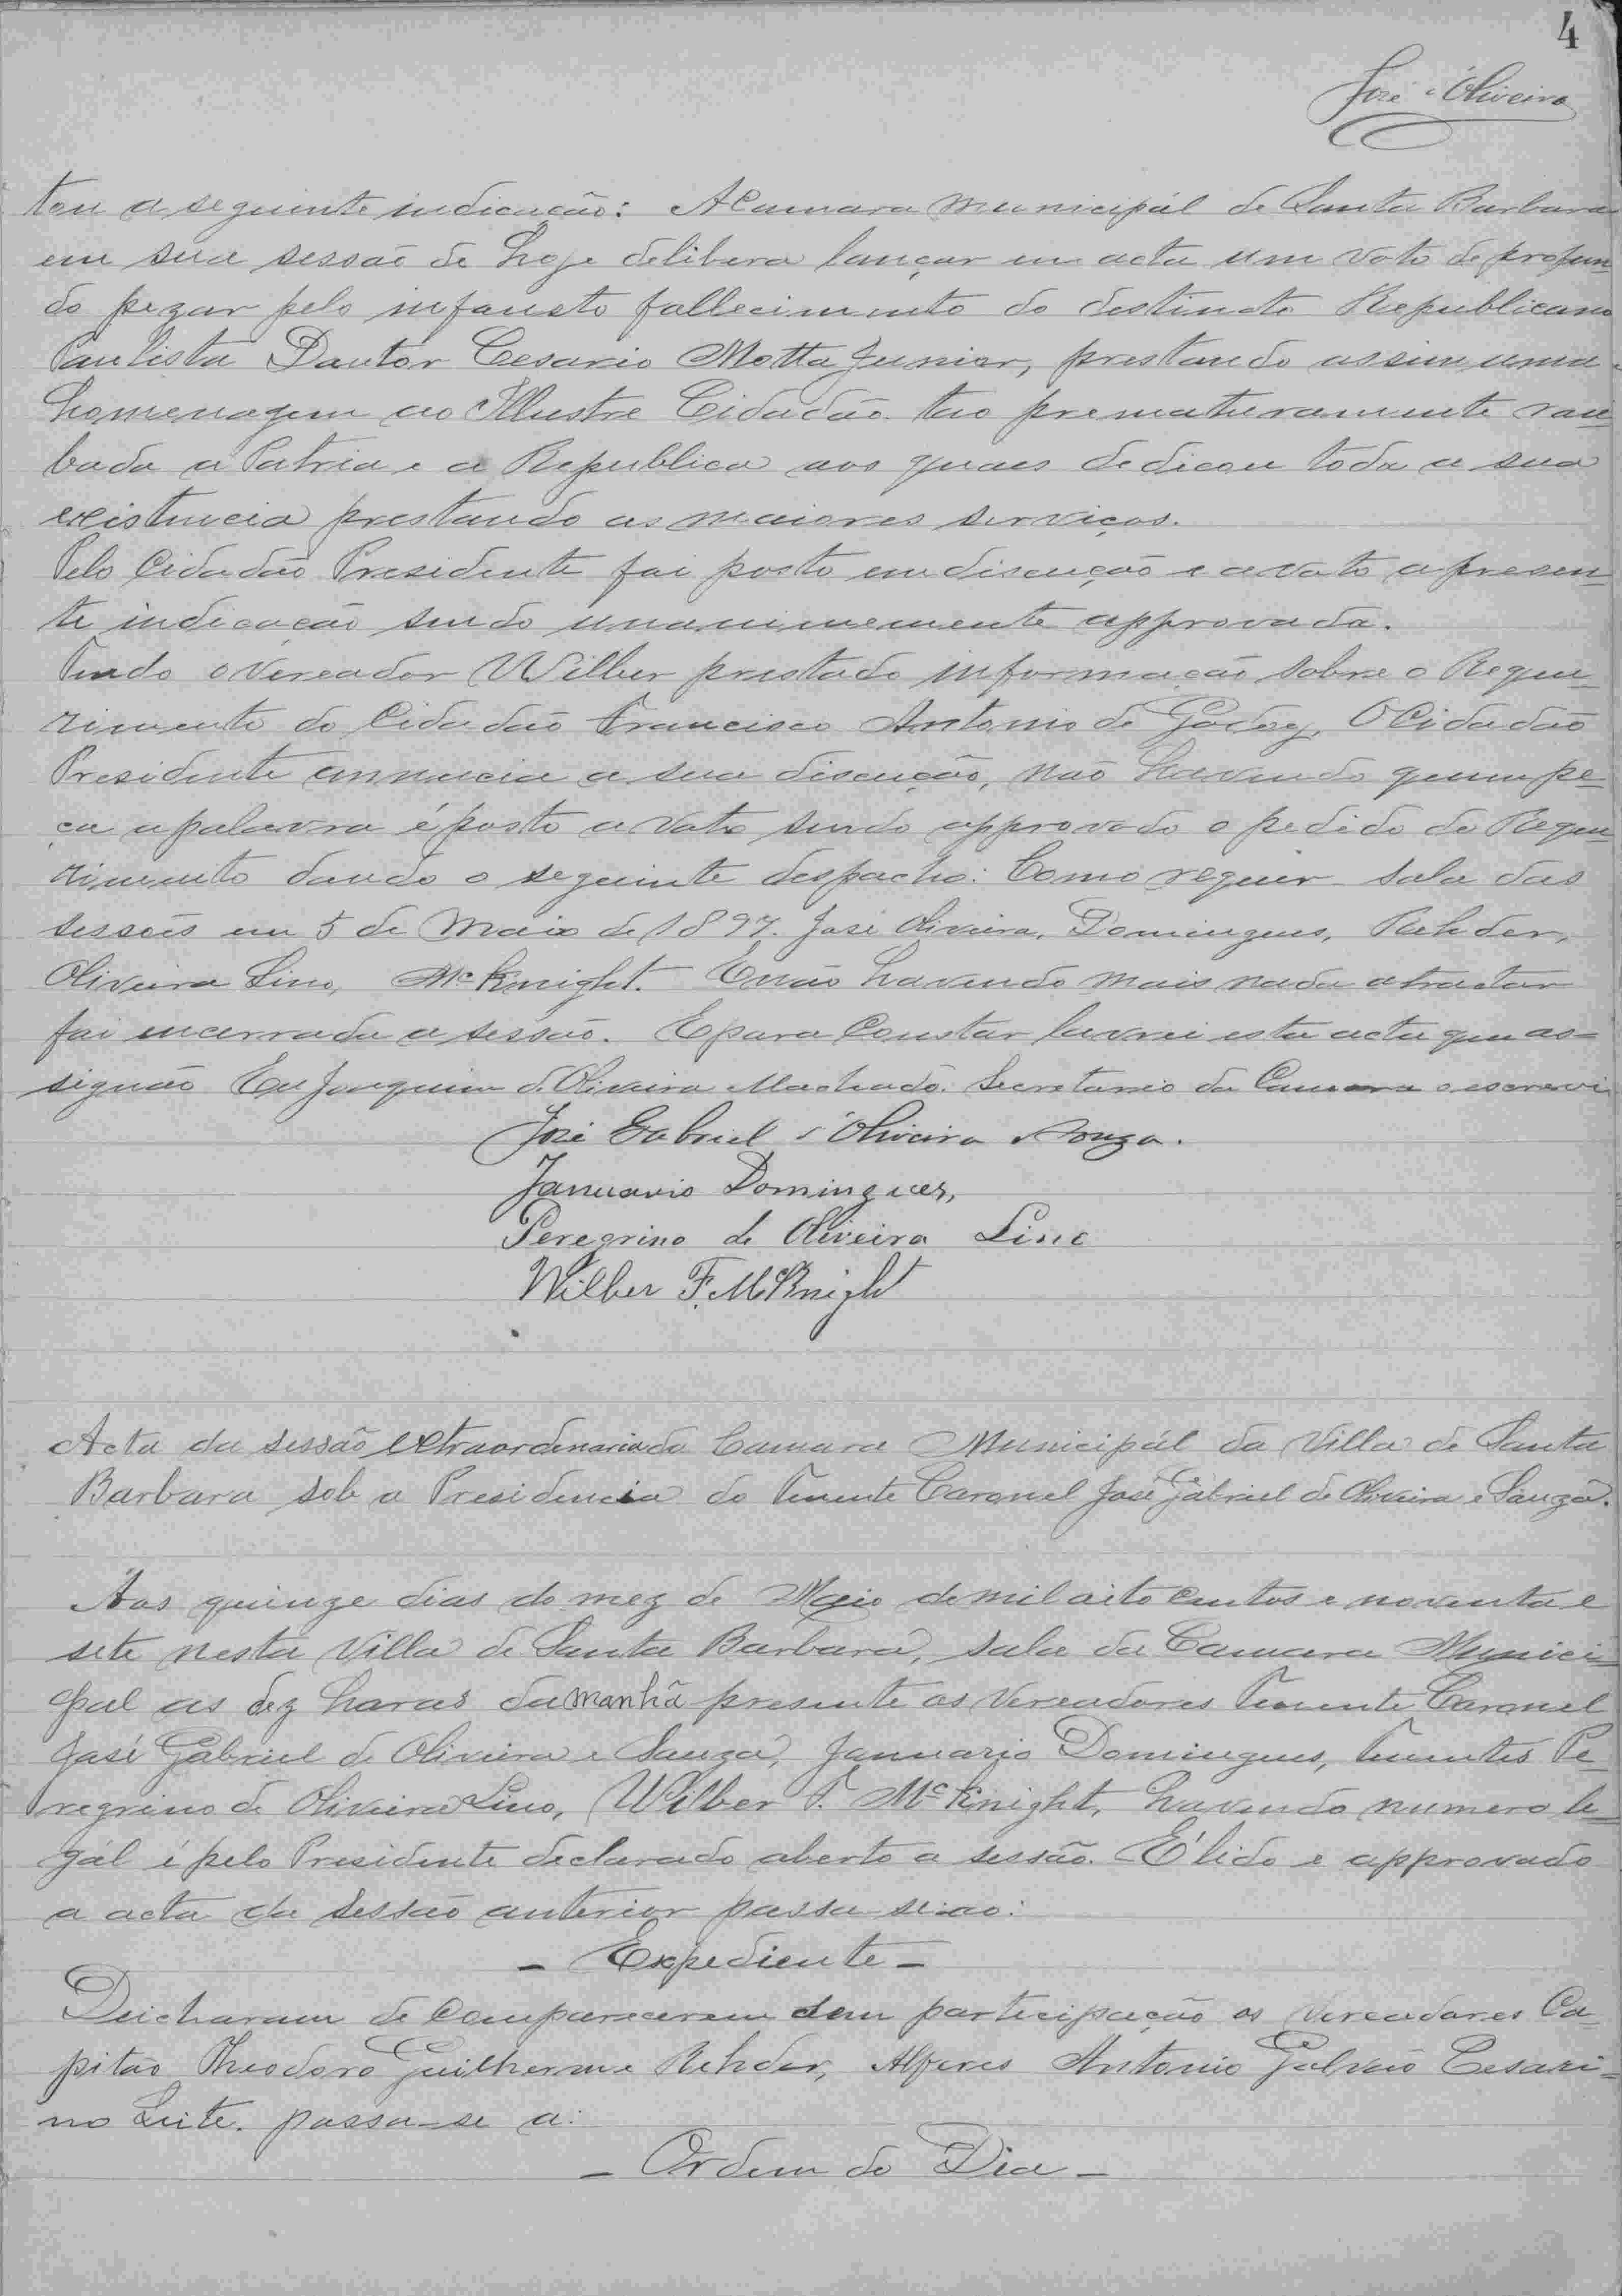 4
José d'Oliveira
tou a seguinte indicação: A Camara Municipál de Santa Barbara
em sua sessão de hoje delibera lançar em acta um voto de profun
do pezar pelo infausto fallecimento do destincto Republicano
Paulista Doutor Cesario Motta Junior, prestando assim uma
homenagem ao Illustre Cidadão tão prematuramente rou
bada a Patria e a Republica aos quaes dedicou toda a sua
existencia prestando as maiores serviços.
Pelo Cidadão Presidente foi posto em discução e a voto a presen
te indicação sendo unanimemente approvada.
Tendo o Vereador Wilber prestado informação sobre o Reque
rimento do Cidadão Francisco Antonio de Godoy, O Cidadão
Presidente annuncia a sua discução, não havendo quem pe-
ça a palavra é posto a voto sendo approvado o pedido do Reque
rimento dando o seguinte despacho: Como requer sala das
sessões em 5 de Maio de 1897. José Oliveira, Domingues, Rehder,
Oliveira Lino, McKnight. E não havendo mais nada a tractar
foi encerrada a sessão. E para Constar lavrei esta acta que as-
signão Eu Joaquim d'Oliveira Machado. Secretario da Camara o escrevi
José Gabriel d'Oliveira e Souza.
Januario Domingues,
Peregrino de Oliveira Lino
Wilber F. McKnight
Acta da sessão extraordenaria da Camara Municipál da Villa de Santa
Barbara sob a Presidencia do Tenente Coronel José Gabriel de Oliveira e Souza.
Aos quinze dias do mez de Maio de mil oito centos e noventa e
sete nesta Villa de Santa Barbara, sala da Camara Munici-
pal as dez horas da manhã presente os Vereadores Tenente Coronel
José Gabriel de Oliveira e Souza, Januario Domingues, Tenentes Pe
regrino de Oliveira Lino, Wilber F. McKnight, havendo numero le-
gál é pelo Presidente declarado aberto a sessão. É lido e approvado
a acta da sessão anterior passa se-ao:
- Expediente -
Deicharam de Comparecerem sem participação os Vereadores Ca
pitão Theodoro Guilherme Rehder, Alferes Antonio Galvão Cesari-
no Leite. passa-se a:
- Ordem do Dia -